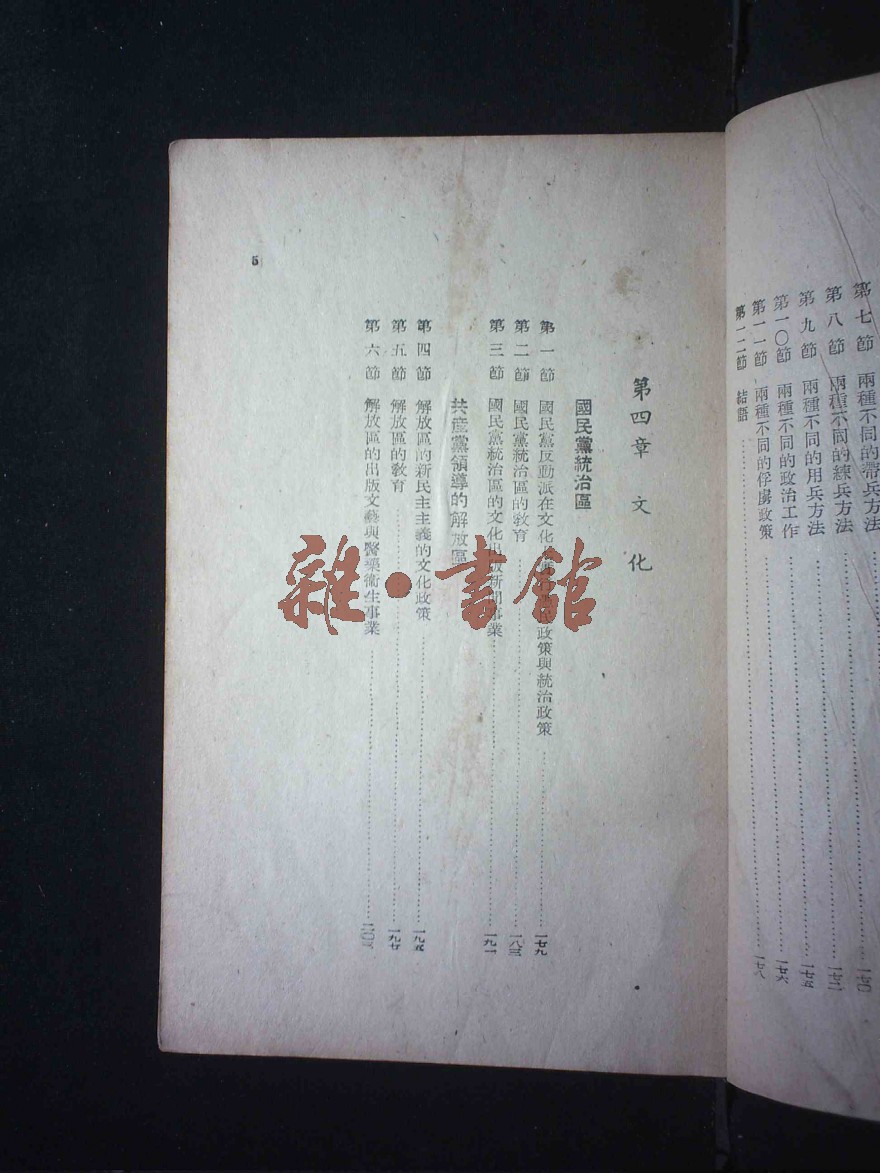 第七節 兩種不同的帶兵方法 一七〇
第八節 兩種不同的練兵方法 一七二
第九節 兩種不同的用兵方法 一七五
第一〇節 兩種不同的政治工作 一七六
第一一節 兩種不同的俘虜政策 一七八
第一二節 結語
第四章 文化
國民黨統治區
第一節 國民黨反動派在文化 政策與統治政策 一七九
第二節 國民黨統治區的教育 一八三
第三節 國民黨統治區的文化出版新聞事業 一九一
共產黨領導的解放區
第四節 解放區的新民主主義的文化政策 一九五
第五節 解放區的教育 一九七
第六節 解放區的出版文藝與醫藥衛生事業 二〇三
5
雜·書館